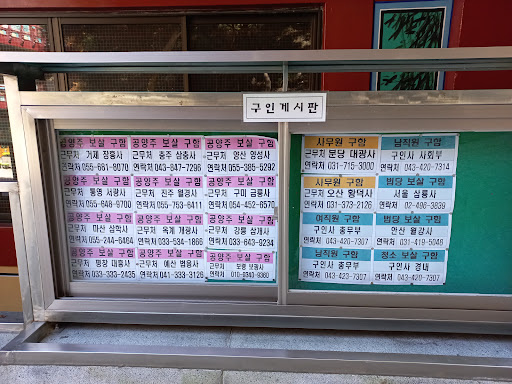 구인게시판
공양주 보살 구함
근무처 거제 장흥사
연락처 055-661-8070
공양주 보살 구함
근무처 충주 삼충사
연락처 043-847-7296
공양주 보살 구함
근무처
연락처 055-385-5292
공양주 보살 구함
근무처 통영 서광사
연락처 055-648-9700
공양주 보살 구함
근무처 진주 월경사
연락처 055-753-6411
공양주 보살 구함
근무처 구미 금룡사
연락처 054-452-6570
공양주 보살 구함
근무처 마산 삼학사
연락처 055-244-6464
공양주 보살 구함
근무처 옥계
연락처 033-534-1866
공양주 보살 구함
근무처 강릉 삼개사
연락처 033-643-9234
공양주 보살 구함
근무처 평창
연락처 033-333-2435
공양주 보살 구함
근무처 예산 법륭사
연락처 041-333-3126
공양주 보살 구함
근무처
연락처
사무원 구함
근무처 분당 대광사
연락처 031-715-3000
남직원 구함
구인사 사회부
연락처 043-420-7314
사무원 구함
근무처 오산
연락처 031-373-2126
법당 보살 구함
서울 삼룡사
연락처
여직원 구함
구인사 총무부
연락처 043-420-7307
법당 보살 구함
안산 월강사
연락처 031-419-5046
남직원 구함
구인사 총무부
연락처 043-420-7307
청소 보살 구함
구인사 경내
연락처 043-420-7307